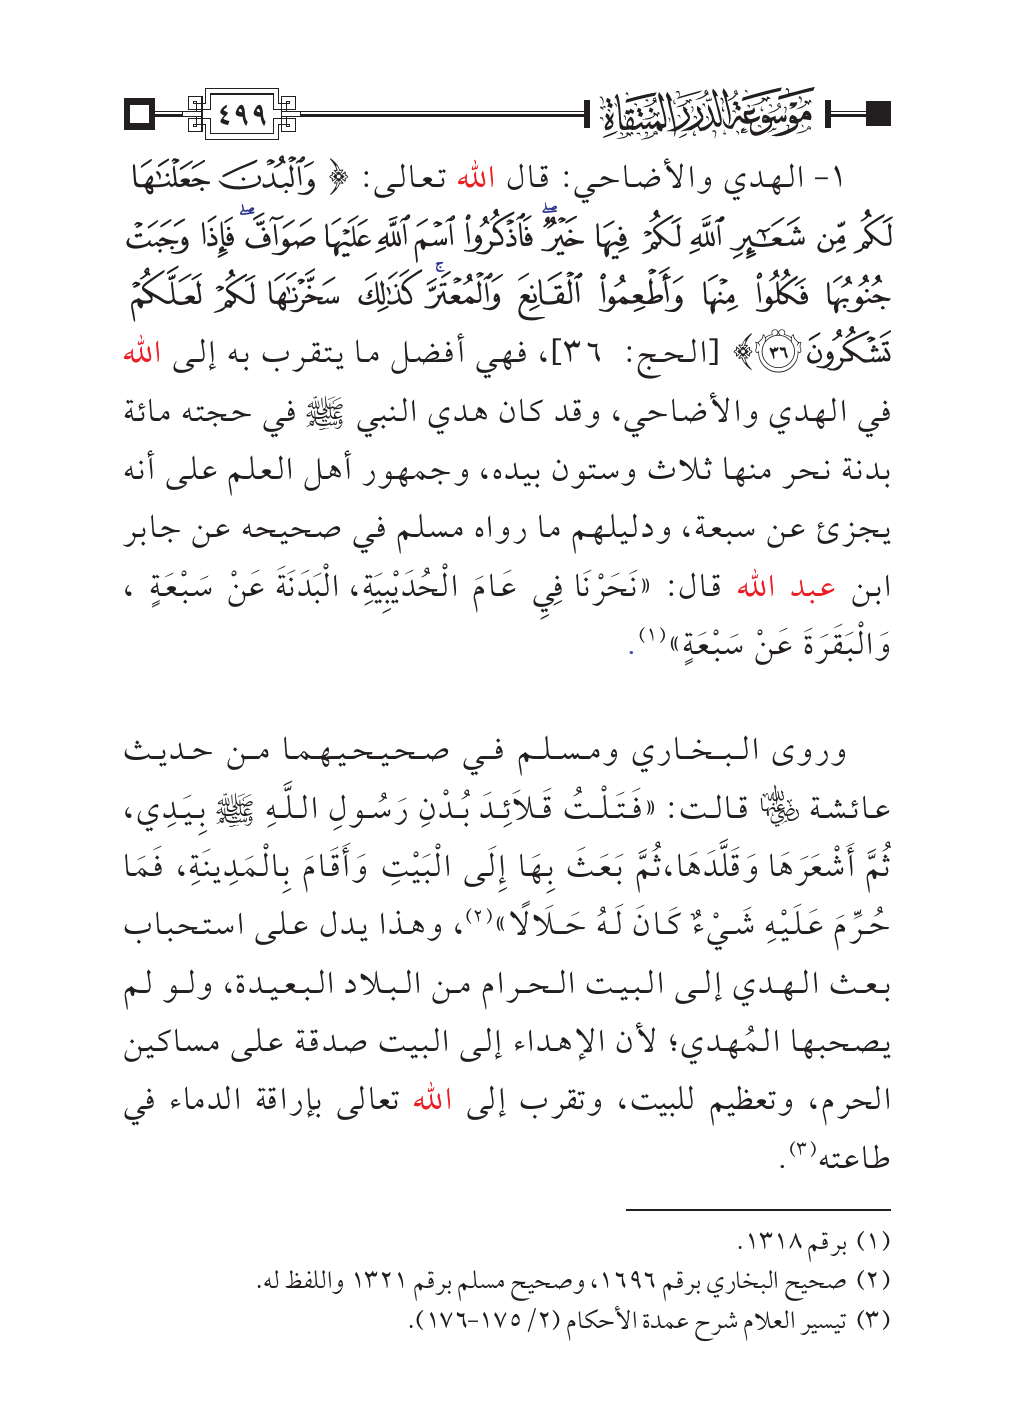 موسوعة الدرر المنتقاة ٤٩٩
١- الهدي والأضاحي: قال الله تعالى: ﴿ وَٱلْبُدْنَ جَعَلْنَٰهَا
لَكُم مِّن شَعَٰٓئِرِ ٱللَّهِ لَكُمْ فِيهَا خَيْرٌۖ فَٱذْكُرُوا۟ ٱسْمَ ٱللَّهِ عَلَيْهَا صَوَآفَّۖ فَإِذَا وَجَبَتْ
جُنُوبُهَا فَكُلُوا۟ مِنْهَا وَأَطْعِمُوا۟ ٱلْقَانِعَ وَٱلْمُعْتَرَّۚ كَذَٰلِكَ سَخَّرْنَٰهَا لَكُمْ لَعَلَّكُمْ
تَشْكُرُونَ ٣٦ ﴾ [الحج: ٣٦]، فهي أفضل ما يتقرب به إلى الله
في الهدي والأضاحي، وقد كان هدي النبي ﷺ في حجته مائة
بدنة نحر منها ثلاث وستون بيده، وجمهور أهل العلم على أنه
يجزئ عن سبعة، ودليلهم ما رواه مسلم في صحيحه عن جابر
ابن عبد الله قال: «نَحَرْنَا فِي عَامَ الْحُدَيْبِيَةِ، الْبَدَنَةَ عَنْ سَبْعَةٍ ،
وَالْبَقَرَةَ عَنْ سَبْعَةٍ»(١).
وروى البخاري ومسلم في صحيحيهما من حديث
عائشة رضي الله عنها قالت: «فَتَلْتُ قَلاَئِدَ بُدْنِ رَسُولِ اللَّهِ ﷺ بِيَدِي،
ثُمَّ أَشْعَرَهَا وَقَلَّدَهَا،ثُمَّ بَعَثَ بِهَا إِلَى الْبَيْتِ وَأَقَامَ بِالْمَدِينَةِ، فَمَا
حُرِّمَ عَلَيْهِ شَيْءٌ كَانَ لَهُ حَلَالًا»(٢)، وهذا يدل على استحباب
بعث الهدي إلى البيت الحرام من البلاد البعيدة، ولو لم
يصحبها المُهدي؛ لأن الإهداء إلى البيت صدقة على مساكين
الحرم، وتعظيم للبيت، وتقرب إلى الله تعالى بإراقة الدماء في
طاعته(٣).
(١) برقم ١٣١٨.
(٢) صحيح البخاري برقم ١٦٩٦، وصحيح مسلم برقم ١٣٢١ واللفظ له.
(٣) تيسير العلام شرح عمدة الأحكام (٢/ ١٧٥-١٧٦).